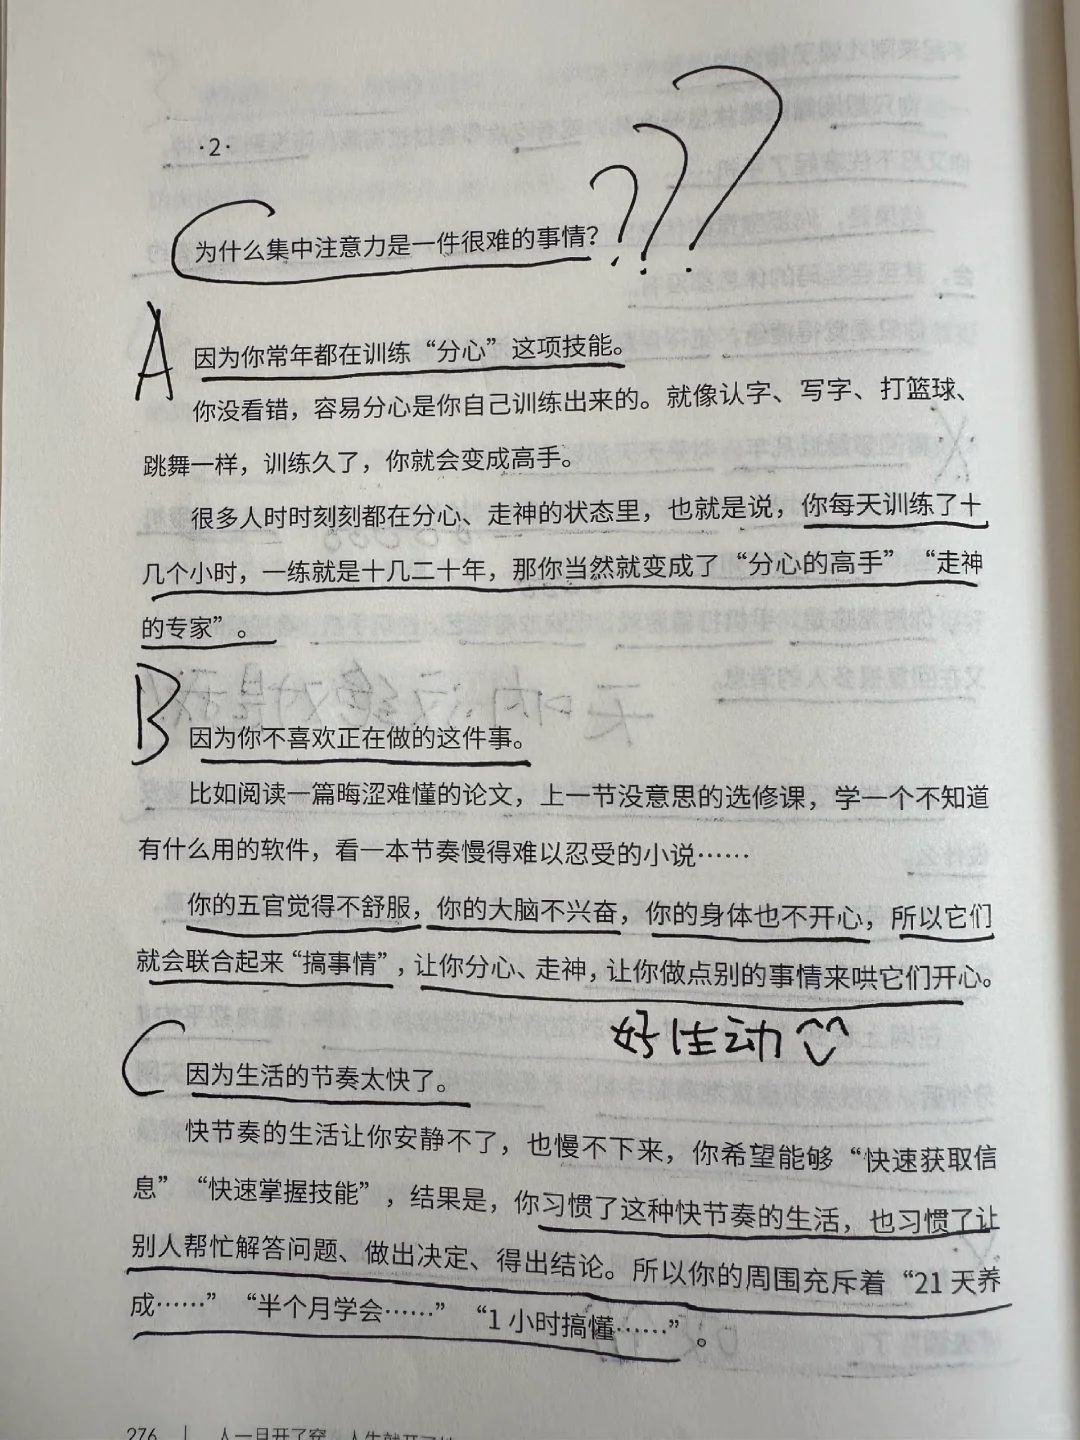 ·2·
???
为什么集中注意力是一件很难的事情？
A
因为你常年都在训练“分心”这项技能。
你没看错，容易分心是你自己训练出来的。就像认字、写字、打篮球、
跳舞一样，训练久了，你就会变成高手。
很多人时时刻刻都在分心、走神的状态里，也就是说，你每天训练了十
几个小时，一练就是十几二十年，那你当然就变成了“分心的高手”“走神
的专家”。
B
因为你不喜欢正在做的这件事。
比如阅读一篇晦涩难懂的论文，上一节没意思的选修课，学一个不知道
有什么用的软件，看一本节奏慢得难以忍受的小说……
你的五官觉得不舒服，你的大脑不兴奋，你的身体也不开心，所以它们
就会联合起来“搞事情”，让你分心、走神，让你做点别的事情来哄它们开心。
好生动
C
因为生活的节奏太快了。
快节奏的生活让你安静不了，也慢不下来，你希望能够“快速获取信
息”“快速掌握技能”，结果是，你习惯了这种快节奏的生活，也习惯了让
别人帮忙解答问题、做出决定、得出结论。所以你的周围充斥着“21天养
成……”“半个月学会……”“1小时搞懂……”。
276 | 人一旦开了窍，人生就开了挂